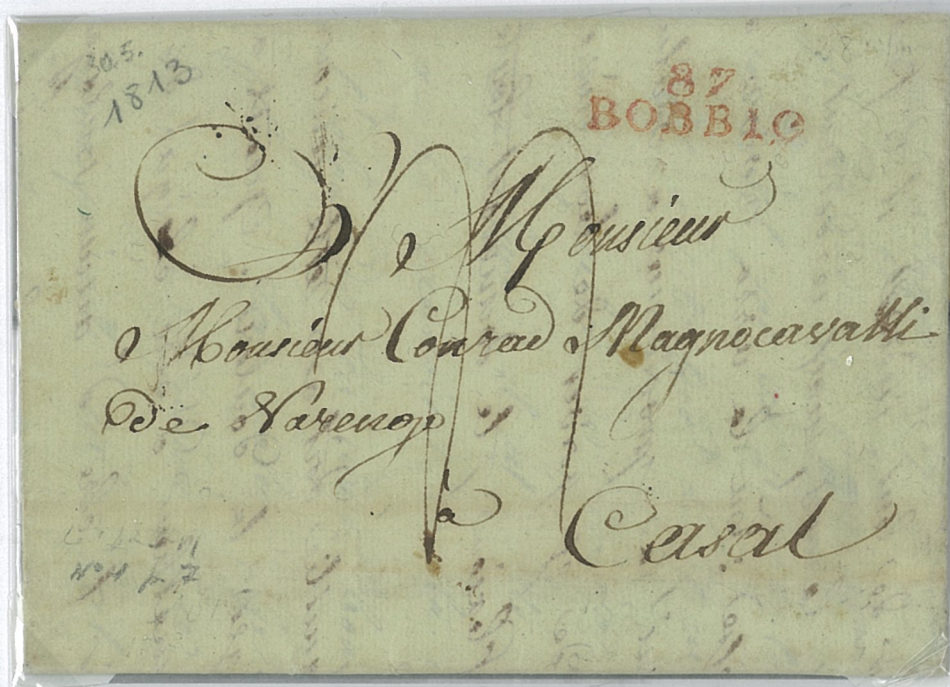 30.5.
1813
87
BOBBIO
Monsieur
Monsieur Conrad Magnocavalli
de Varengo
à
Casal